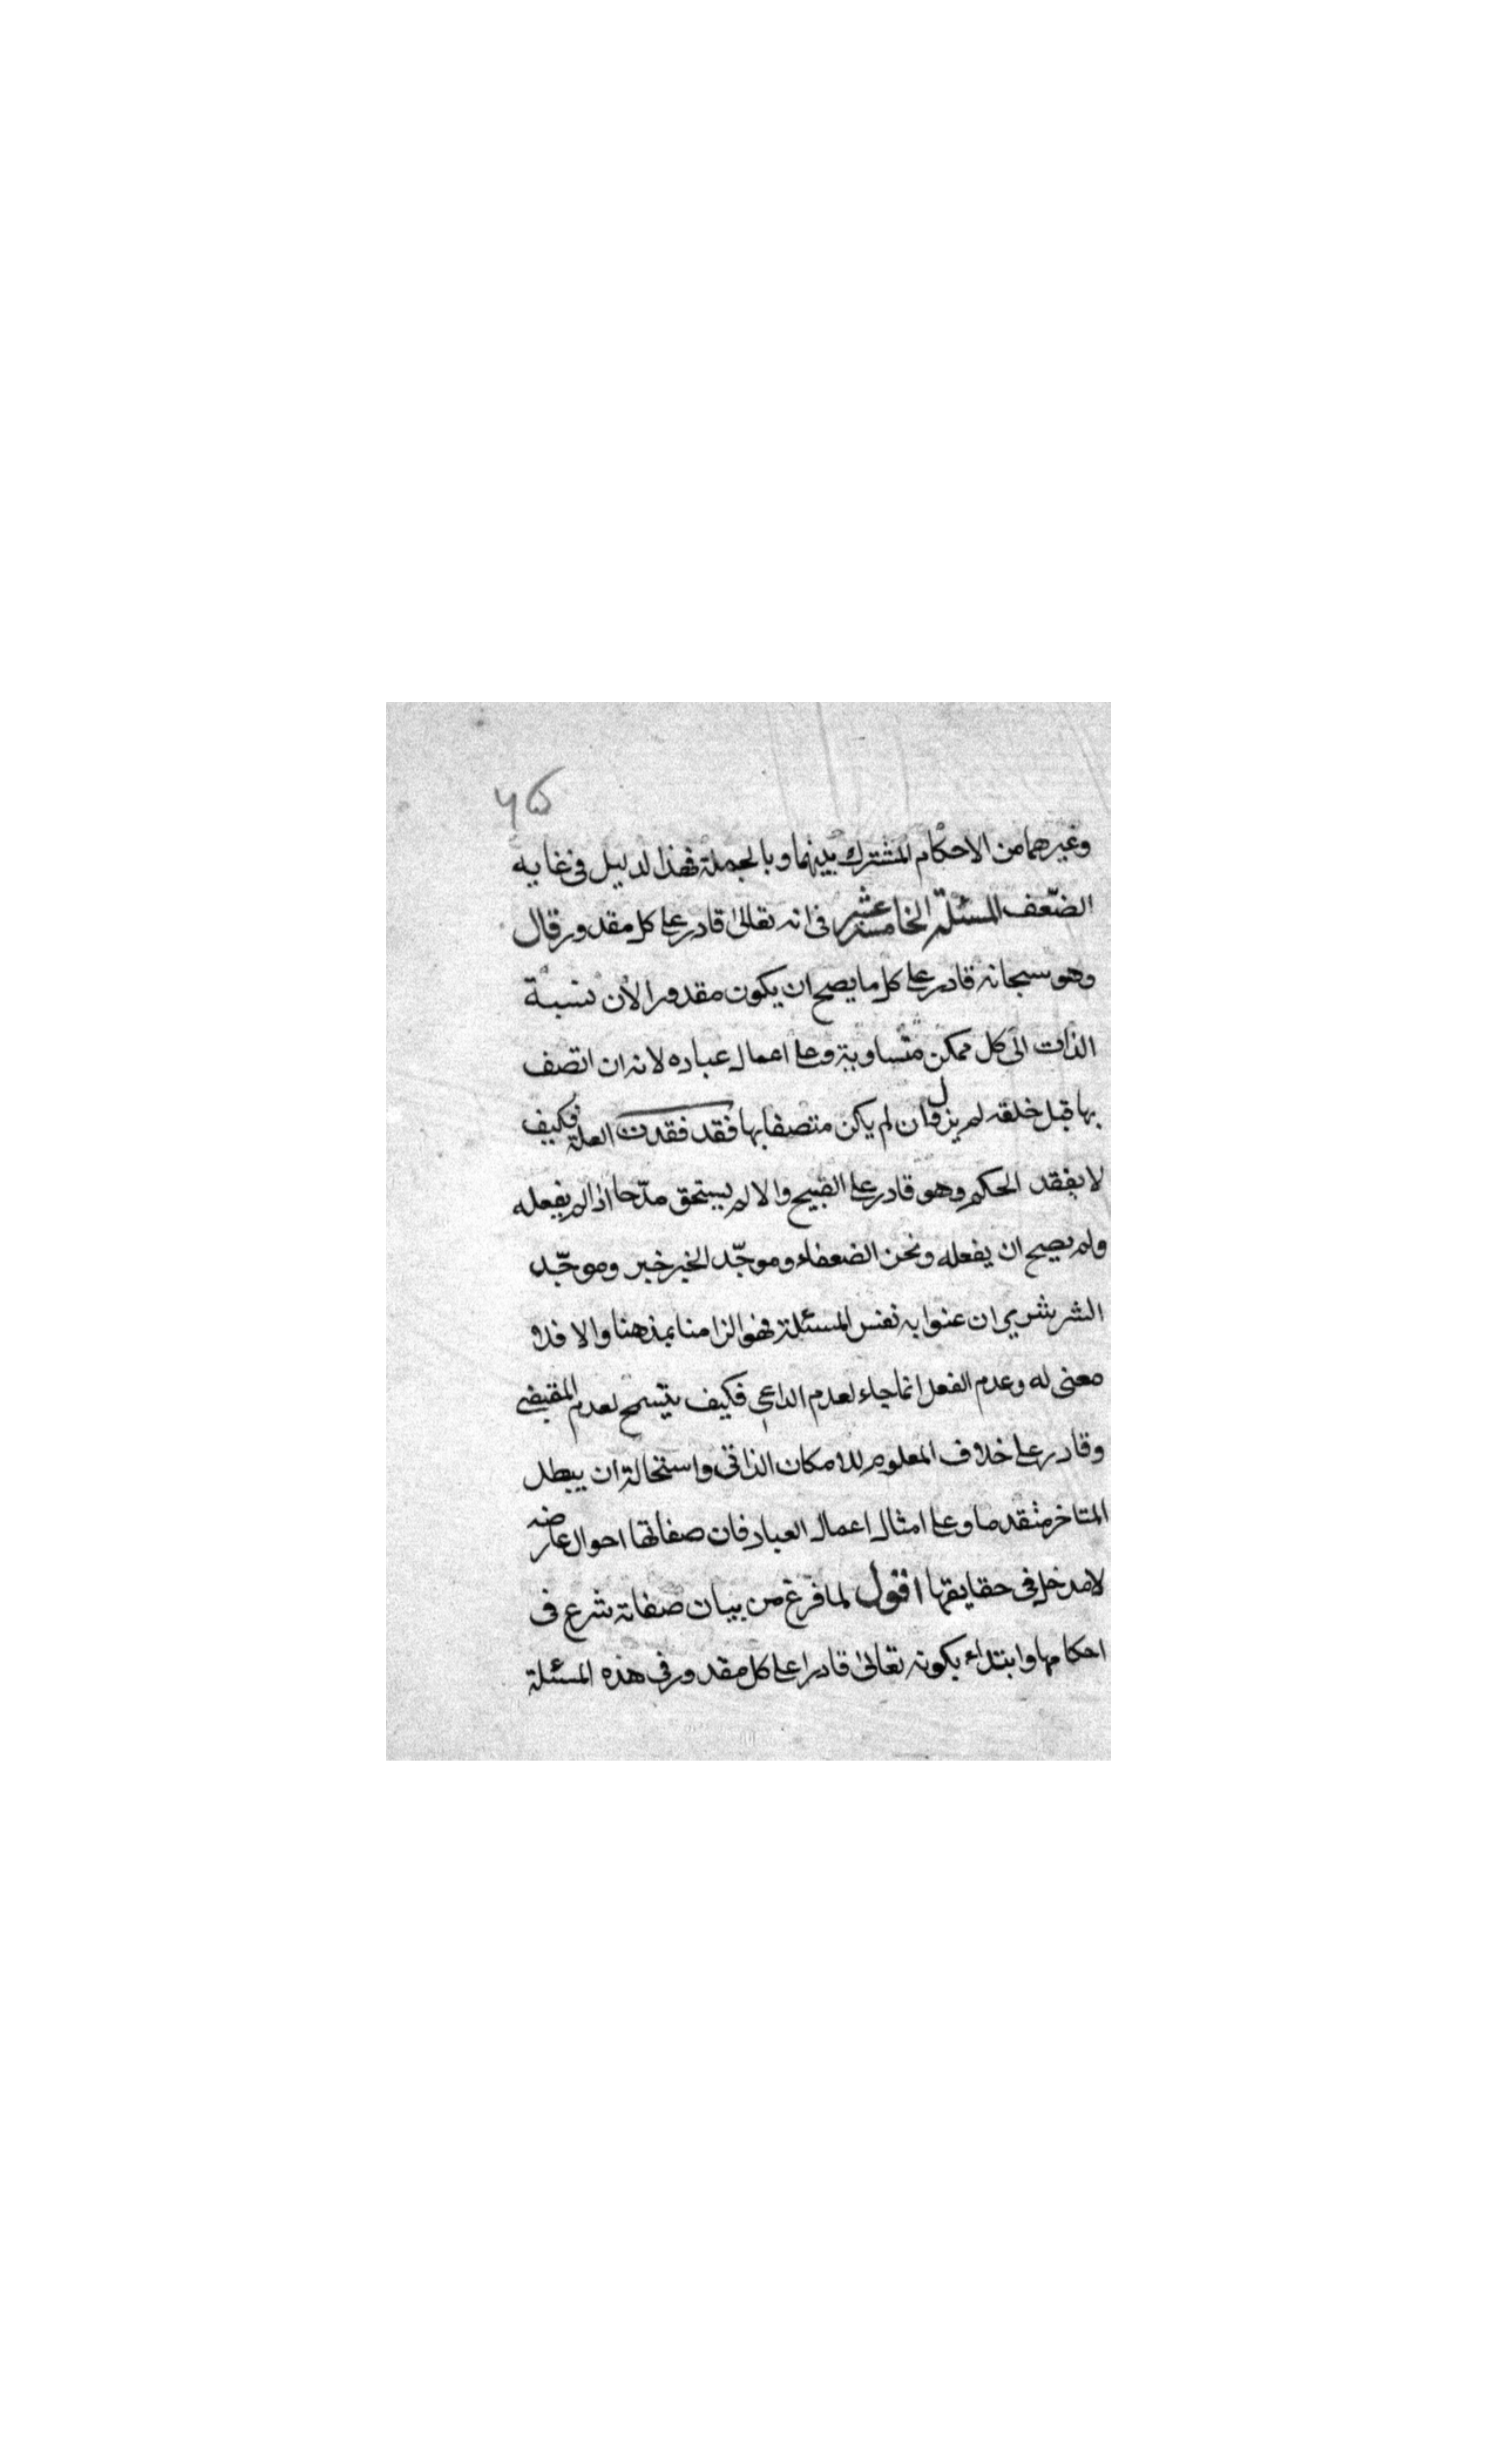 ۶۵
وغيرهما من الاحكام المشترك بينهما وبالجملة فهذا لدليل فى غايه
الضّعف المسئلة الخامسة عشر فى انه تعالى قادر على كل مقدور قال
وهو سبحانه قادر على كل ما يصح ان يكون مقدورا لأن نسبة
الذات الى كل ممكن متساوية وعلى اعمال عباده لانه ان اتصف
بها قبل خلقه لم يزل وان لم يكن متصفا بها فقد فقدت العلة فكيف
لا يفقد الحكم وهو قادر على القبيح والا لم يستحق مدحا اذا لم يفعله
ولم يصح ان يفعله ونحن الضعفاء وموجّد الخير خير وموجّد
الشر شرير ان عنوا به نفس المسئلة فهو الزامنا بمذهبنا والا فلا
معنى له وعدم الفعل انما جاء لعدم الداعى فكيف يتسمح لعدم المقتضى
وقادر على خلاف المعلوم للامكان الذاتى واستحالة ان يبطل
المتاخر متقدما وعلى امثال اعمال العباد فان صفاتها احوال عارضه
لا مدخل فى حقايقها اقول لما فرغ من بيان صفاته شرع فى
احكامها وابتداء بكونه تعالى قادرا على كل مقدور فى هذه المسئلة